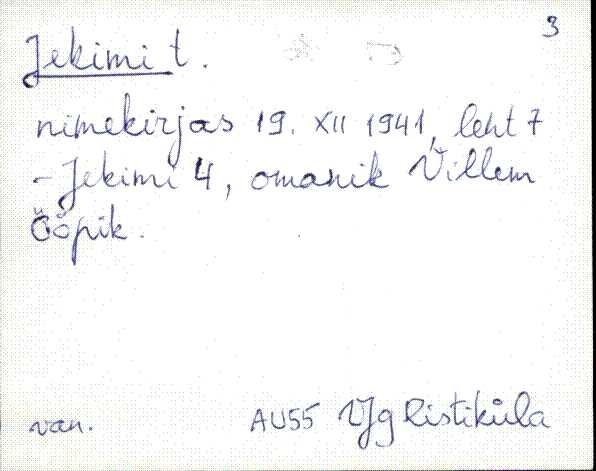 3
Jekimi t.
nimekirjas 19. XII 1941, leht 7
- Jekimi 4, omanik Villem
Ööpik.
van. AU55 VJg Ristiküla